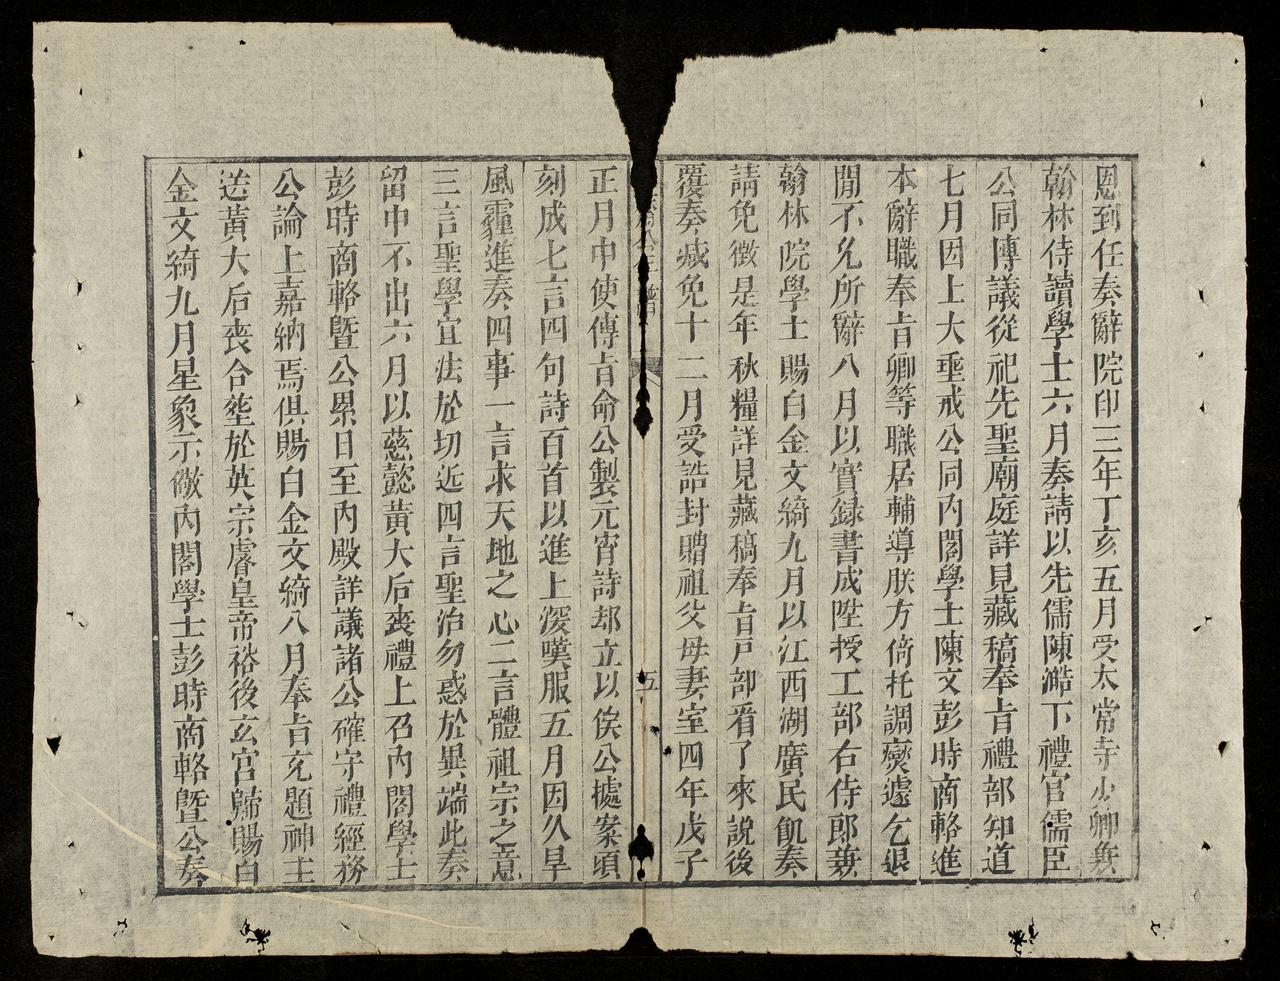 恩到任奏辭院印三年丁亥五月受太常寺少卿兼
翰林侍讀學士六月奏請以先儒陳澔下禮官儒臣
公同博議從祀先聖廟庭詳見藏稿奉旨禮部知道
七月因上大埀戒公同內閣學士陳文彭時商輅進
本辭職奉旨卿等職居輔導朕方倚托調爕遽乞退
閒不允所辭八月以實録書成陞授工部右侍郎兼
翰林院學士賜白金文綺九月以江西湖廣民飢奏
請免徵是年秋糧詳見藏稿奉旨戸部看了來說後
覆奏減免十二月受誥封贈祖父母妻室四年戊子
五
正月中使傳旨命公製元宵詩却立以俟公據案頃
刻成七言四句詩百首以進上深嘆服五月因久旱
風霾進奏四事一言求天地之心二言體祖宗之意
三言聖學宜法於切近四言聖治勿惑於異端此奏
留中不出六月以慈懿黃大后喪禮上召內閣學士
彭時商輅曁公累日至內殿詳議諸公確守禮經務
公論上嘉納焉俱賜白金文綺八月奉旨充題神主
送黃大后喪合塟於英宗睿皇帝裕後玄宮歸賜白
金文綺九月星象示儆內閣學士彭時商輅曁公奏